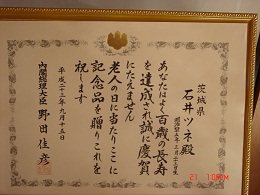 茨城県
石井ツネ殿
あなたはよく百歳の長寿
を達成され誠に慶賀
にたえません
老人の日に当たりここに
記念品を贈りこれを
祝します
平成二十三年九月十五日
内閣総理大臣 野田佳彦